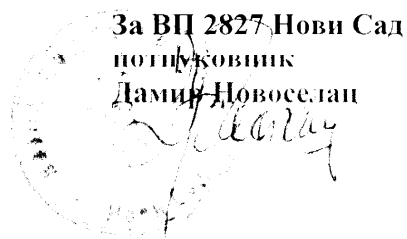 За ВП 2827 Нови Сад
потпуковник
Дамир Новоселац